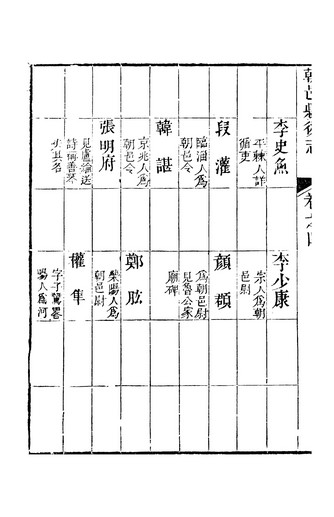 朝邑縣後志
卷之四
李史魚
平棘人詳
循吏
李少康
宋人爲朝
邑尉
段灌
臨淄人爲
朝邑令
顏頵
爲朝邑尉
見魯公家
廟碑
韓諶
京兆人爲
朝邑令
鄭肱
滎陽人爲
朝邑尉
張明府
見盧綸送
詩稱善琴
失其名
權隼
字子鷙畧
陽人爲河